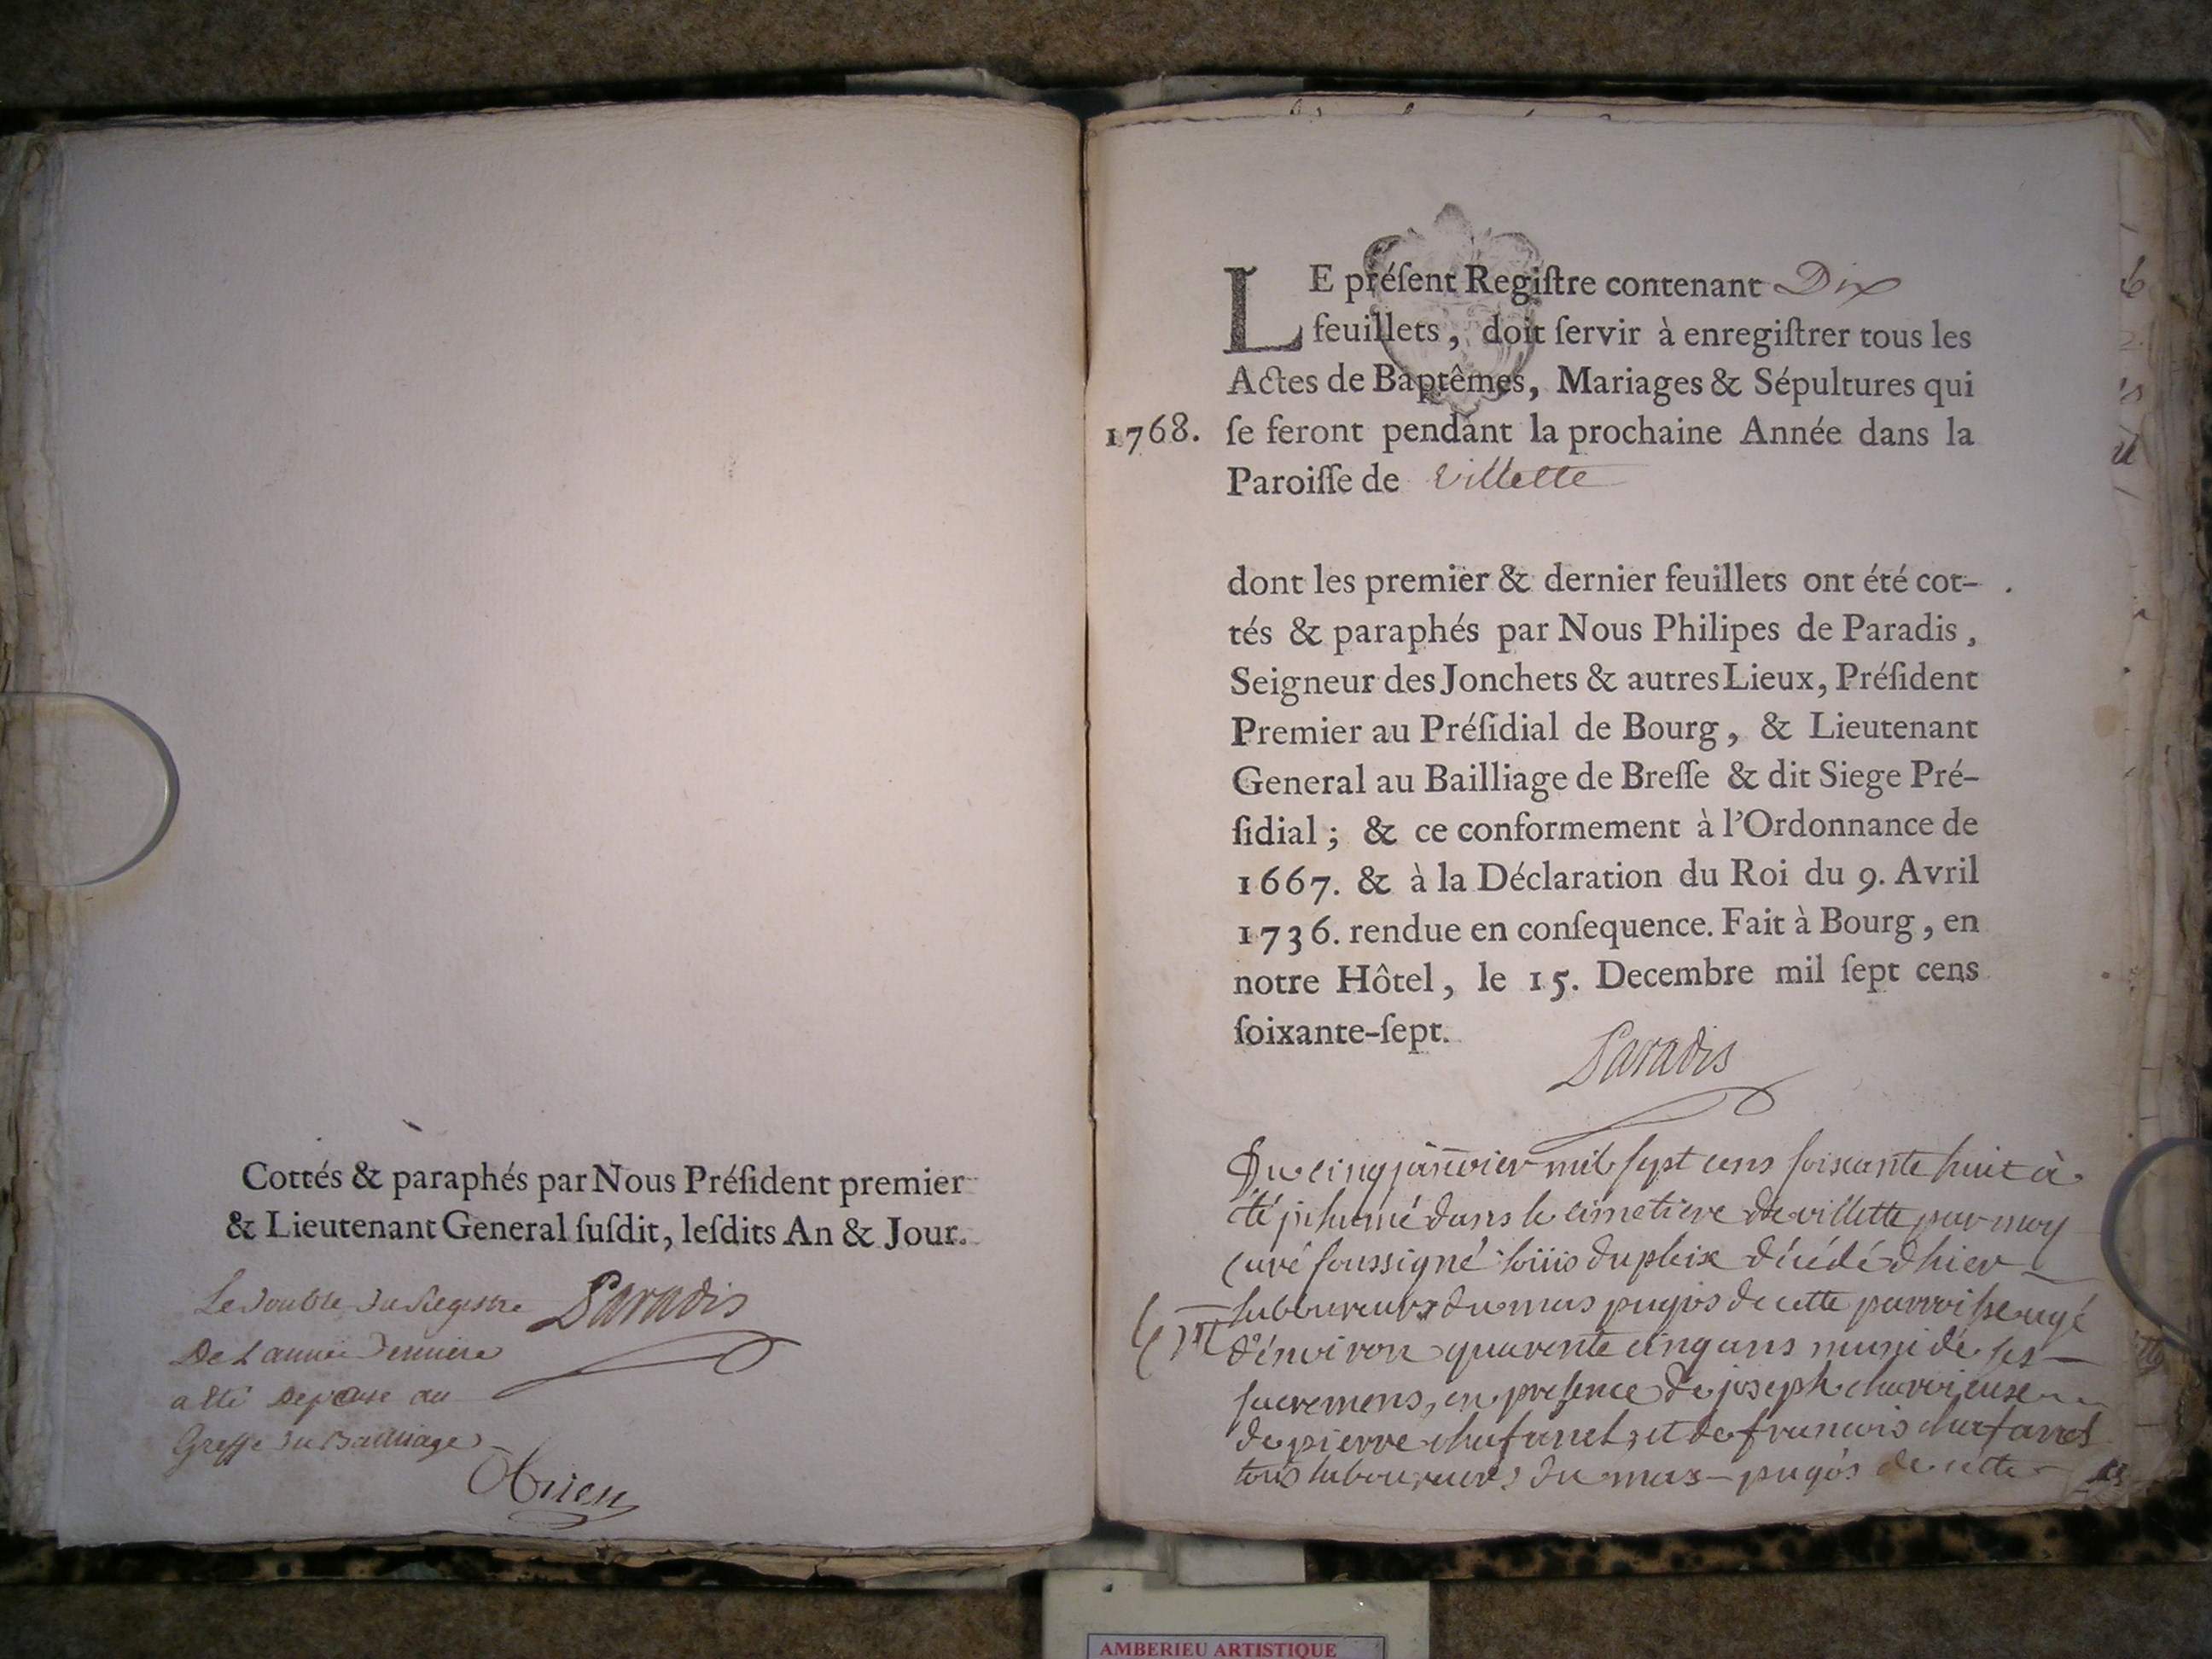 Cottés & paraphés par Nous Préſident premier
& Lieutenant General ſuſdit, leſdits An & Jour.
Le double du Registre
De L'année Derniere
a été Déposé au
Greffe du Bailliage
Paradis
LE préſent Regiſtre contenant Dix
feuillets, doit ſervir à enregiſtrer tous les
Actes de Baptêmes, Mariages & Sépultures qui
1768. ſe feront pendant la prochaine Année dans la
Paroiſſe de Villette
dont les premier & dernier feuillets ont été cot-
tés & paraphés par Nous Philipes de Paradis,
Seigneur des Jonchets & autres Lieux, Préſident
Premier au Préſidial de Bourg, & Lieutenant
General au Bailliage de Breſſe & dit Siege Pré-
ſidial; & ce conformement à l'Ordonnance de
1667. & à la Déclaration du Roi du 9. Avril
1736. rendue en conſequence. Fait à Bourg, en
notre Hôtel, le 15. Decembre mil ſept cens
ſoixante-ſept.
Paradis
Du cinq janvier mil sept cens soixante huit à
été inhumé dans le cimetiere de villette par moy
curé soussigné loüis dupleix décédé d'hier
laboureur du mas pugos de cette parroisse agé
d'environ quarente cinq ans muni de ses
sacremens, en presence de joseph
de pierre chafanel, et de francois chafanel
tous laboureurs du mas pugos de cette
AMBERIEU ARTISTIQUE